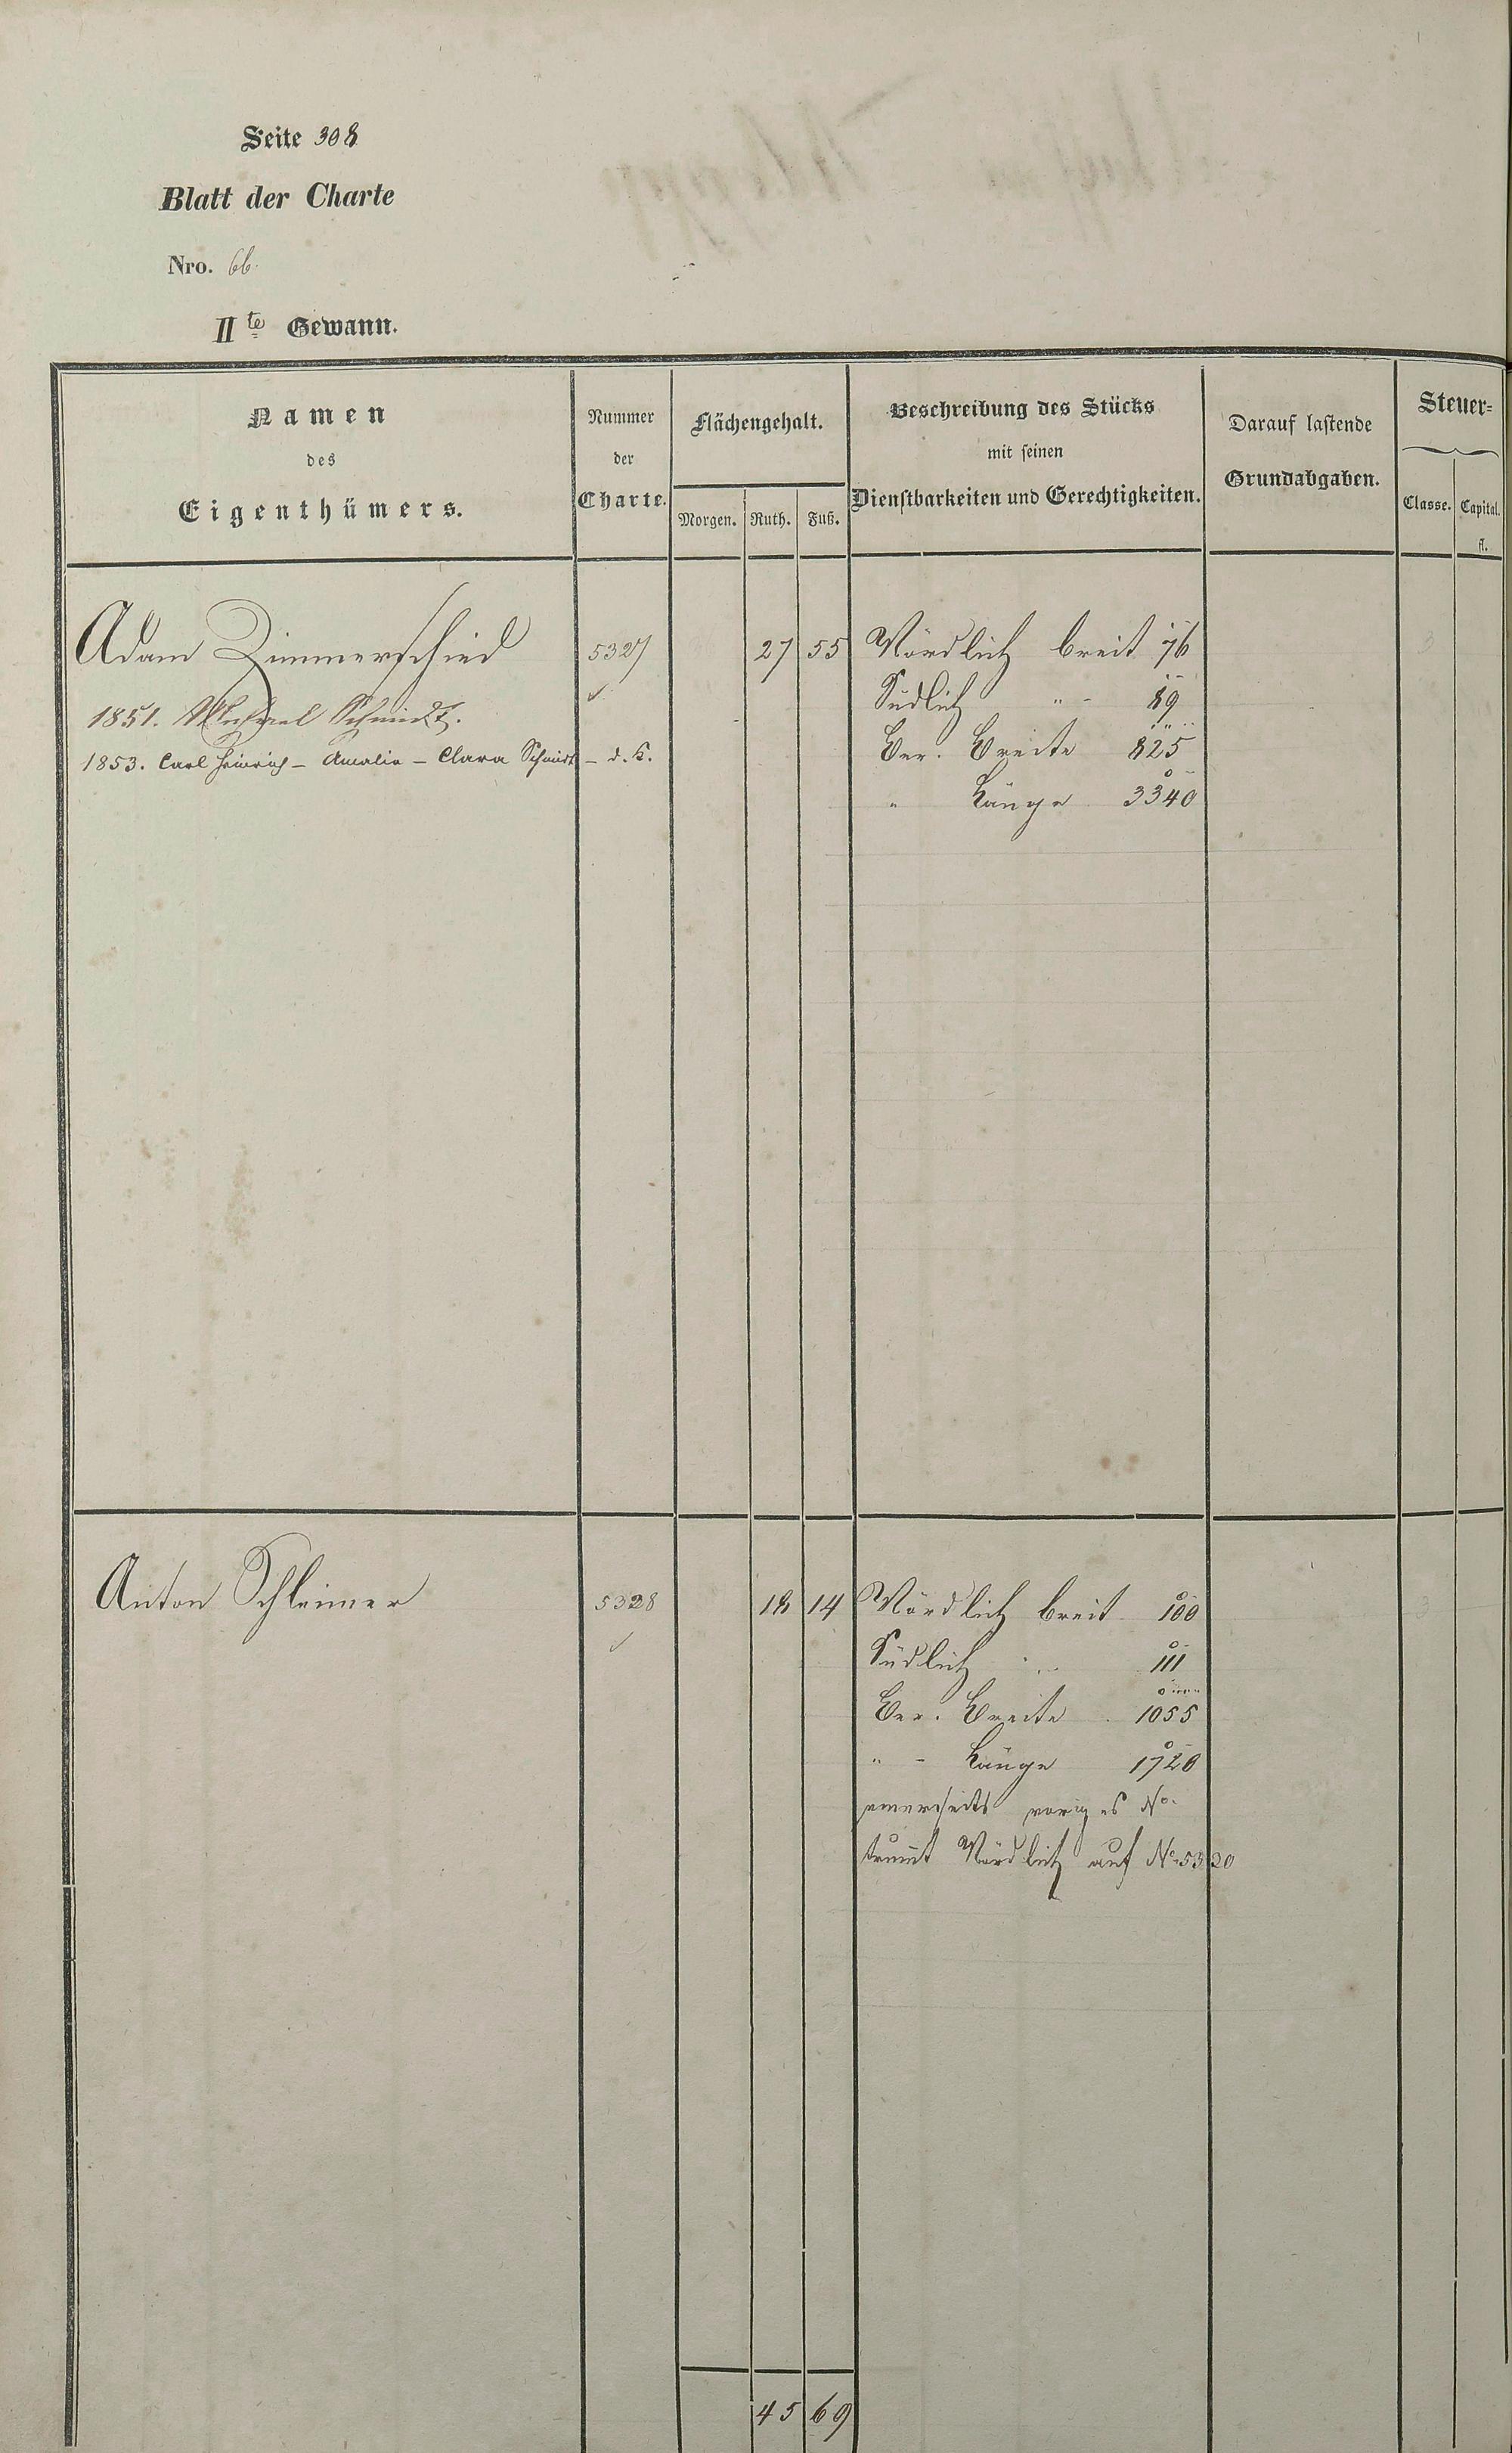 Seite 308
Blatt der Charte
Nro. 66.
II te Gewann.
Namen des Eigenthümers.
Nummer der Charte.
Flächengehalt.
Morgen. Ruth. Fuß.
Beschreibung des Stücks mit seinen Dienstbarkeiten und Gerechtigkeiten.
Darauf lastende Grundabgaben.
Steuer=
Classe. Capital. fl.
Adam Zimmerschied 5327 27 55 Nördlich breit 76 3
1851. Michael Schmidt. Südlich " - 89
1853. Carl Heinrich - Amalia - Clara Schmidt - d. K. Ber. Breite 825
" Länge 3340
Anton Schleimer 5328 18 14 Nördlich breit 100 3
Südlich " 111
Ber. Breite 1055
" - Länge 1720
einerseits voriges No.
Nördlich auf No. 5320
45 69